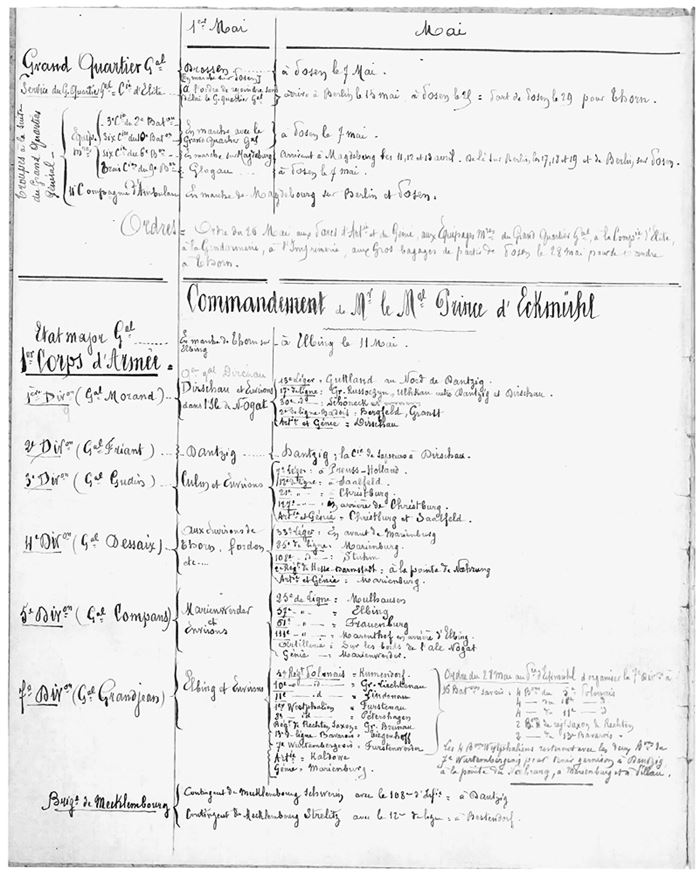 1er Mai
Mai
Grand Quartier Gal
Drossen
En marche sur Posen
à Posen le 7 Mai.
Service du G. Quartier Gal = Cie d'Elite
a l'ordre de rejoindre sur
le G. Quartier Gal
arrive à Berlin le 13 mai à Posen le 25 = Part de Posen le 29 pour Thorn.
Troupes à la suite
du Grand Quartier
Général
Equip.
Mres
3e Cie du 2e Baton
En marche avec le
Grand Quartier Gal
à Posen le 7 mai.
six Cies du 6e Baton
En marche sur Magdebourg
Arrivent à Magdebourg les 11, 12 et 13 avril. De là sur Berlin les 17, 18 et 19 et de Berlin sur Posen.
trois Cies du 9e Bon
Glogau
à Posen le 7 mai.
Compagnie d'Ambulance
En marche de Magdebourg sur Berlin et Posen.
Ordres = Ordre du 26 Mai aux Parcs d'Artie et du Génie, aux Equipages Mres du Grand Quartier Gal, à la Compie d'Elite,
à la Gendarmerie, à l'Imprimerie, aux Gros bagages de partir de Posen le 28 mai pour se rendre
à Thorn.
Commandement de Mr le Mal Prince d'Eckmühl
Etat major Gal
En marche de Thorn sur
Elbing
à Elbing le 11 Mai.
1er Corps d'Armée =
1ère Divon (Gal Morand)
Qer gal Dirchau
Dirschau et Environs
dans l'Ile de Nogat
13e Léger = Guttland au Nord de Dantzig.
17e de ligne = Gr. Russoczyn, Uhlkau entre Dantzig et Dirschau.
30e = Schöneck et environs
2e de ligne Badois = Bergfeld, Granst
Artie et Génie = Dirschau
2e Divon (Gal Friant)
Dantzig
Dantzig, la Cie de Sapeurs à Dirschau.
3e Divon (Gal Gudin)
Culm et Environs
7e Léger = à Preuss-Holland.
12e de Ligne = à Saalfeld.
21e = à Christburg.
127e = en arrière de Christburg.
Artie et Génie = Christburg et Saalfeld.
4e Divon (Gal Dessaix)
aux Environs de
Thorn, Fordon
de ....
33e Léger = En avant de Marienburg
85e de Ligne = Marienburg.
108e = Stuhm
2e Regt de Hesse Darmstadt = à la pointe de Nehrung
Artie et Génie = Marienburg.
5e Divon (Gal Compans)
Marienwerder
et
Environs
25e de Ligne = Mulhausen
57e = Elbing
61e = Frauenburg
111e = Marenthof en arrière d'Elbing.
Artillerie = Sur les bords de l'ale Nogat
Génie = Marienwerder.
7e Divon (Gal Grandjean)
Elbing et Environs
5e Regt Polonais = Kumendorf.
10e d = Gr. Lichtenau
11e d = Lindenau
1er Westphalien = Furstenau
8e d = Petershagen
Regt de Rechten Saxon = Gr. Brunau
13e de Ligne Bavarois = Tiegenhoff
7e Wurtembergeois = Furstenwerder
Artie = Kaldowe
Génie = Marienburg.
Ordre du 28 Mai au Pce d'Eckmuhl d'organiser la 7e Divon à
16 Batons savoir : 4 Bons du 5e Polonais
4 — du 10e — d
4 — du 11e — d
2 Bons du regt Saxon de Rechten
2 — du 13e Bavarois
Les 4 Bons Westphaliens resteront avec les deux Bons du
7e Wurtembergeois pour tenir garnison à Dantzig
à la pointe du Nehrung, à Marienburg et à Pillau.
Brigde de Mecklembourg
Contingent de Mecklembourg Schwerin avec le 108e d'Infie = à Dantzig
Contingent de Mecklembourg Strelitz avec le 12e de ligne = à Bestendorf.